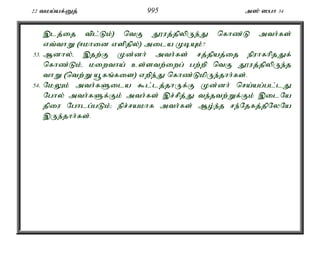 22 வமய்யக்னுத்
995
அஸ் ஸபா 34
இடத்தை விட்டும்) வெகு தூரத்திலிருந்து கொண்டு அவர்கள்
எவ்வாறு (ஈமானை எளிதில்) அடைய முடியும்?
53. ஆனால், இதற்கு முன்னர் அவர்கள் சத்தியத்தை நிராகரித்துக்
கொண்டும், மறைவாய் உள்ளவற்றைப் பற்றி வெகு தூரத்திலிருந்த
வாறு (வெற்று யூகங்களை) எறிந்து கொண்டுமிருந்தார்கள்.
54. மேலும் அவர்களுடைய கூட்டத்தாருக்கு முன்னர் செய்யப்பட்டது
போல் அவர்களுக்கும் அவர்கள் இச்சித்து வந்தவற்றுக்கும் இடையே
திரை போடப்படும்; நிச்சயமாக அவர்கள் ஆழ்ந்த சந்தேகத்திலேயே
இருந்தார்கள்.